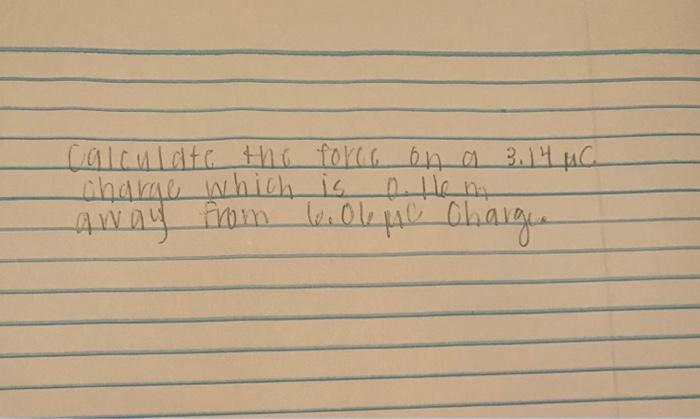 Calculate the force on a 3.14 μC
charge which is 0.16 m
away from 6.06 μC Charge.